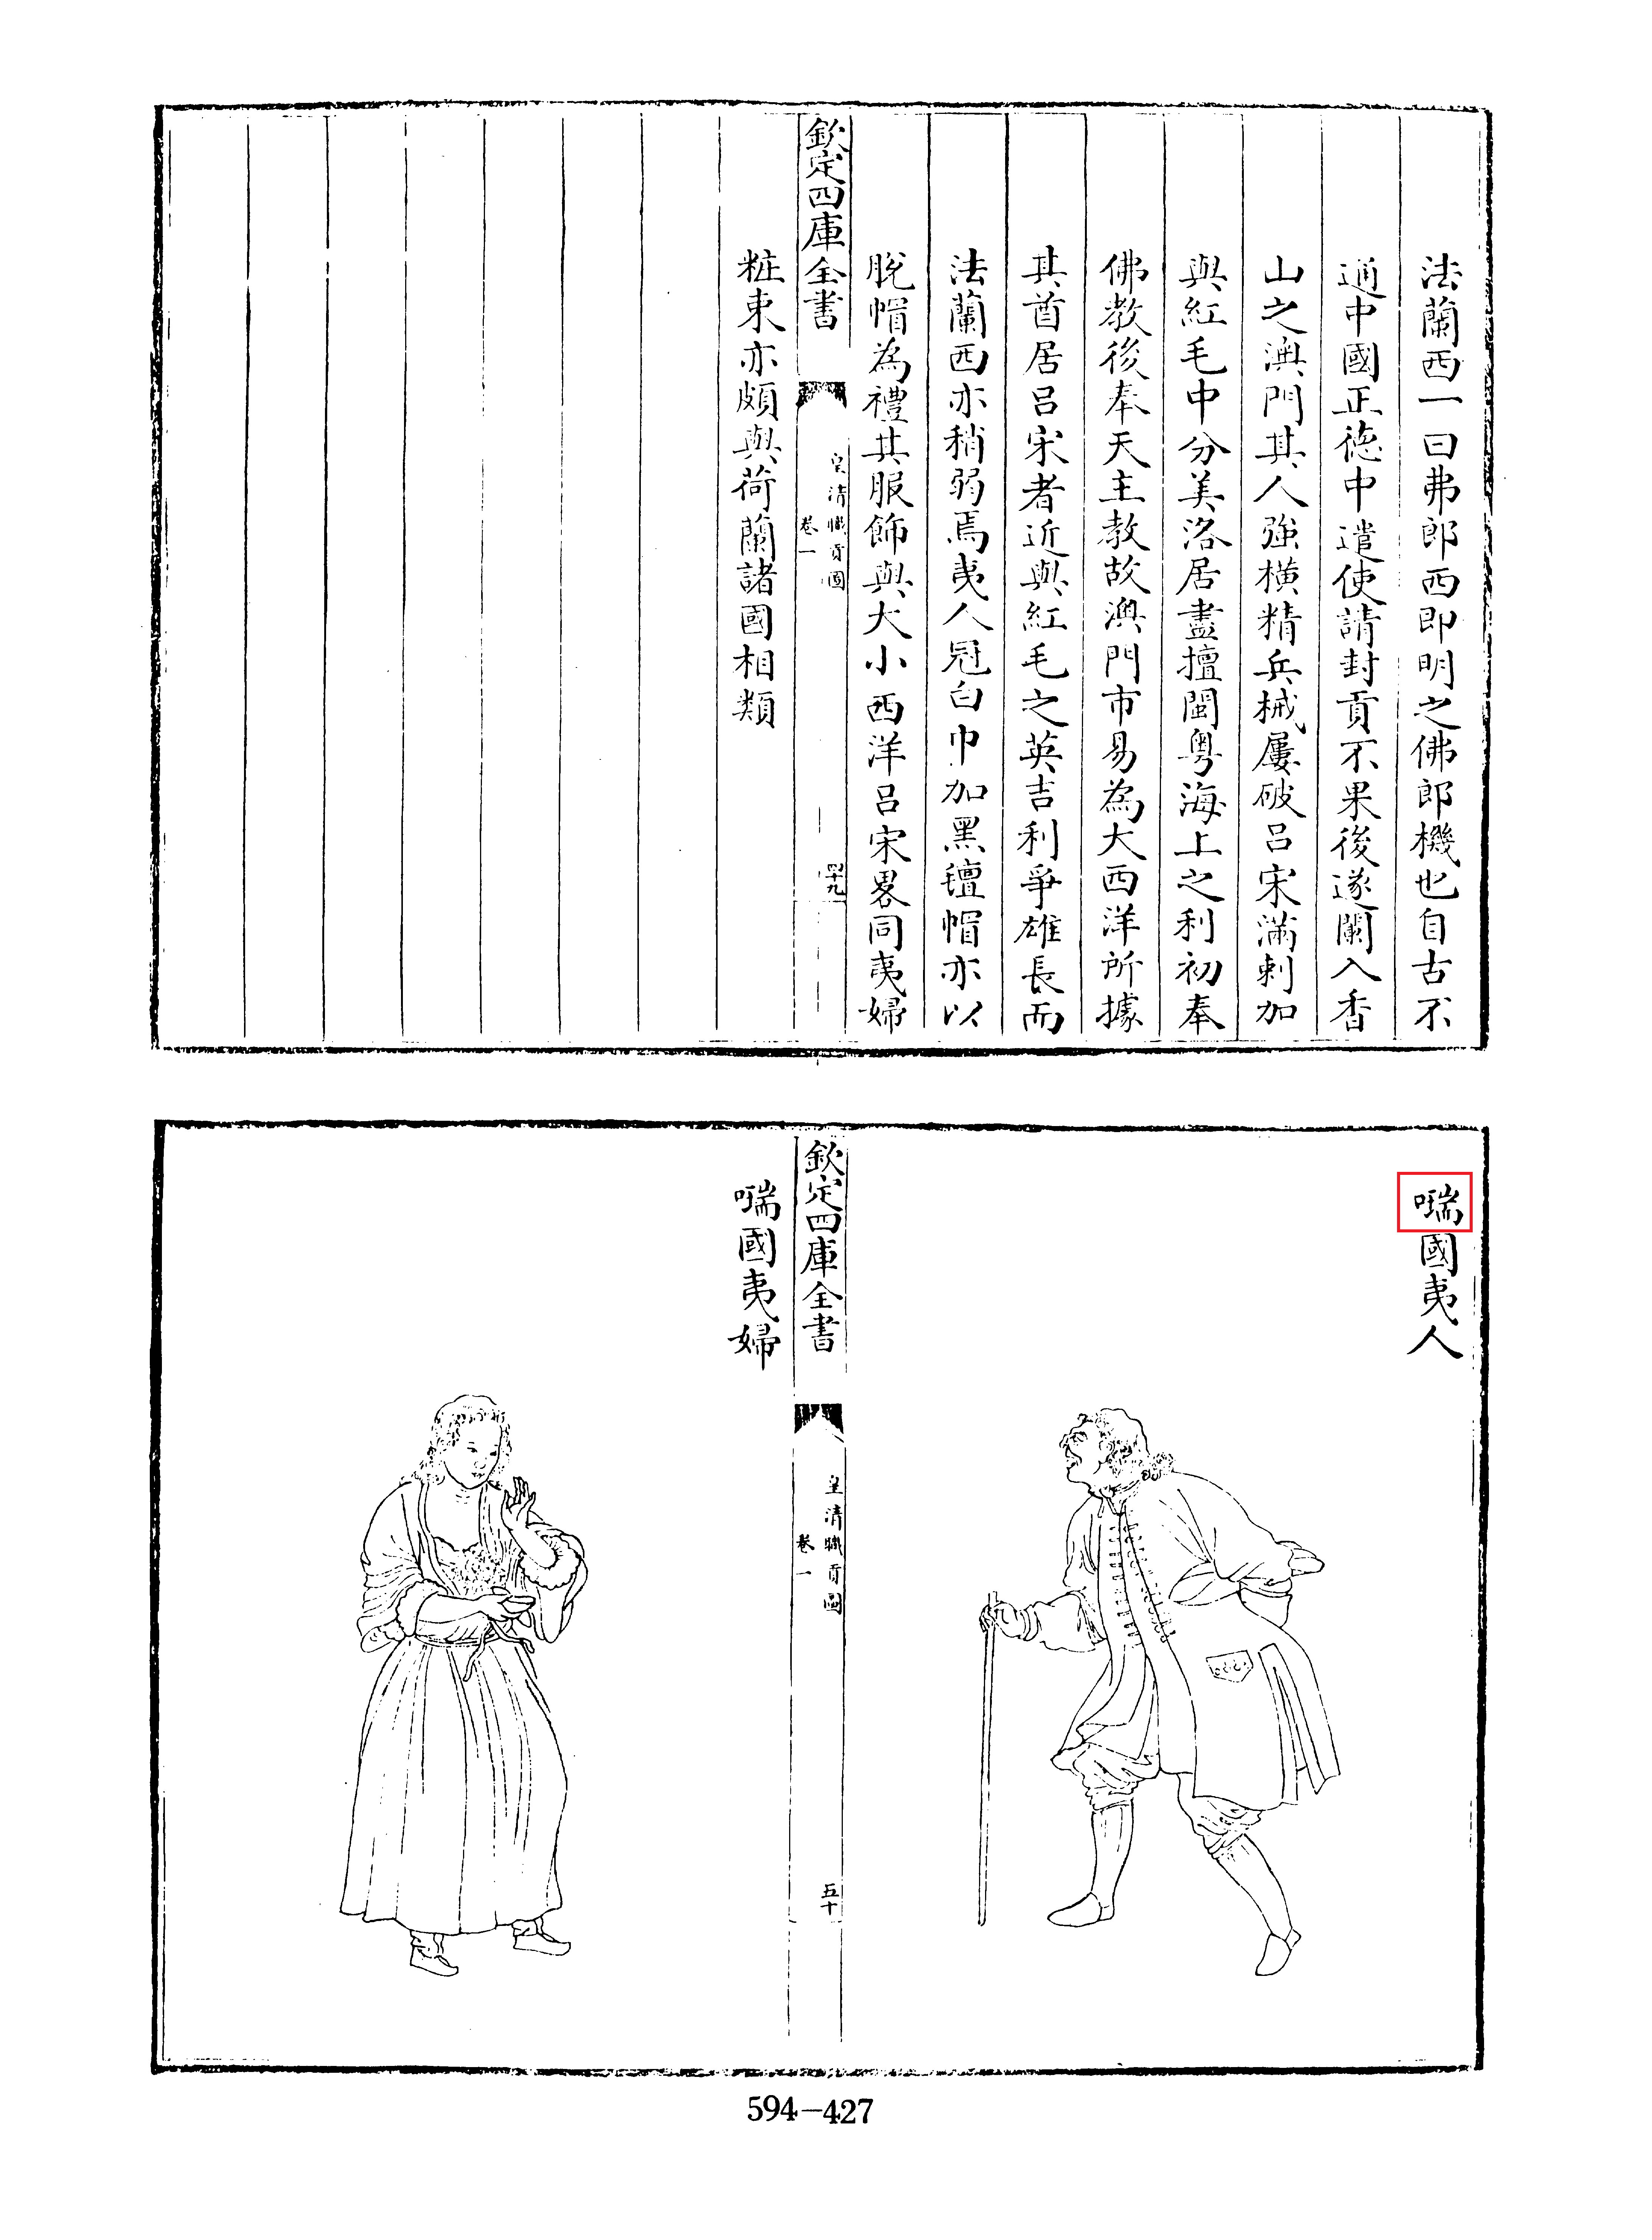 法蘭西一曰弗郎西即明之佛郎機也自古不
通中國正德中遣使請封貢不果後遂闌入香
山之澳門其人強橫精兵械屢破呂宋滿剌加
與紅毛中分美洛居盡擅閩粤海上之利初奉
佛教後奉天主教故澳門市易為大西洋所據
其酋居呂宋者近與紅毛之英吉利爭雄長而
法蘭西亦稍弱焉夷人冠白巾加黑氊帽亦以
脫帽為禮其服飾與大小西洋呂宋畧同夷婦
欽定四庫全書
皇清職貢圖
卷一
四十九
粧束亦頗與荷蘭諸國相類
國夷人
欽定四庫全書
皇清職貢圖
卷一
五十
國夷婦
594-427